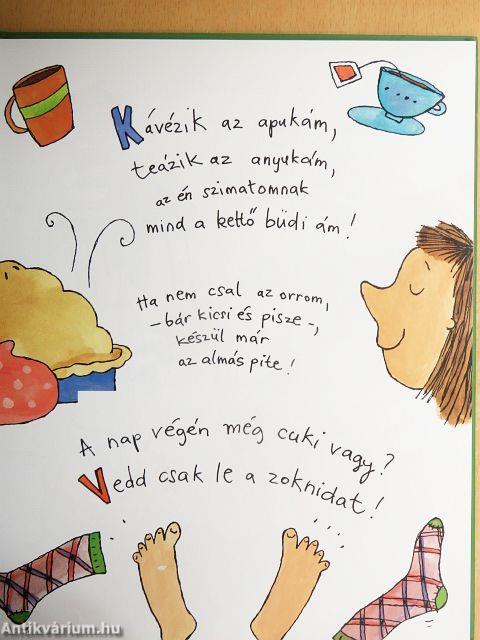 Kávézik az apukám,
teázik az anyukám,
az én szimatomnak
mind a kettő büdi ám!
Ha nem csal az orrom,
– bár kicsi és pisze –,
készül már
az almás pite!
A nap végén még cuki vagy?
Vedd csak le a zoknidat!
Antikvárium.hu